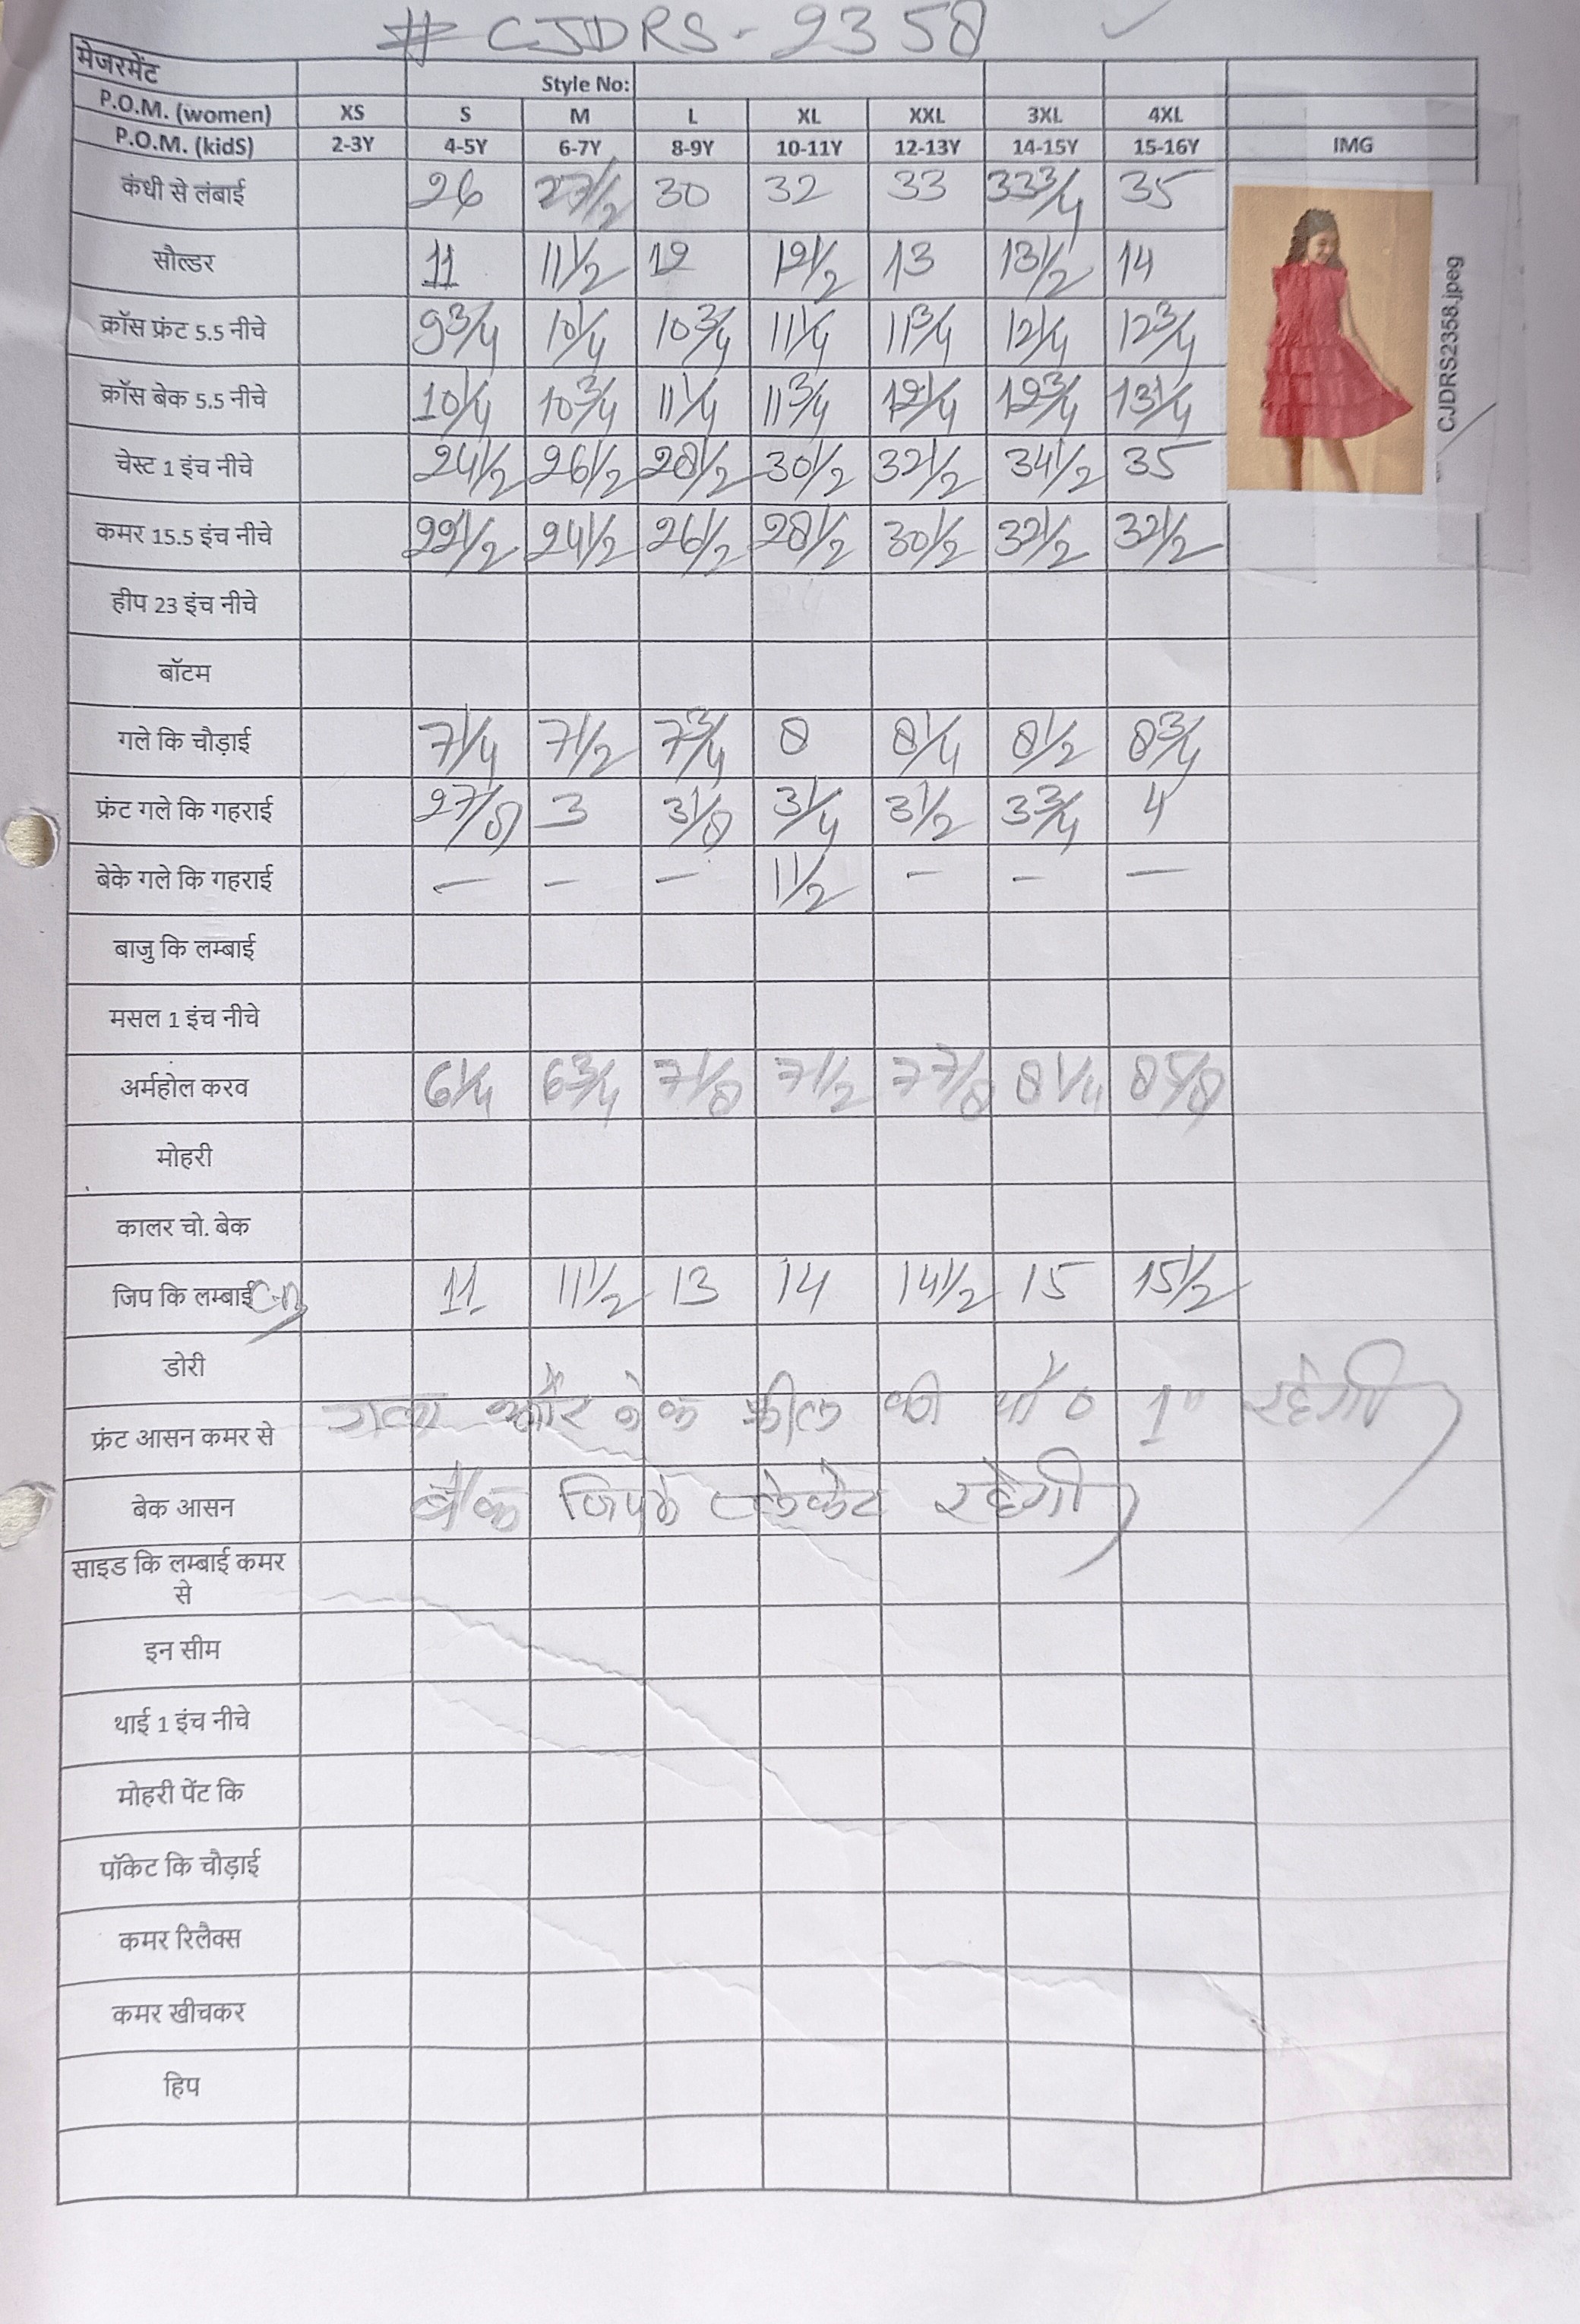 # CJDRS - 2358
मेजरमेंट Style No:
P.O.M. (women) XS S M L XL XXL 3XL 4XL
P.O.M. (kidS) 2-3Y 4-5Y 6-7Y 8-9Y 10-11Y 12-13Y 14-15Y 15-16Y IMG
कंधी से लंबाई 26 27 1/2 30 32 33 33 3/4 35
सौल्डर 11 11 1/2 12 12 1/2 13 13 1/2 14
क्रॉस फ्रंट 5.5 नीचे 9 3/4 10 1/4 10 3/4 11 1/4 11 3/4 12 1/4 12 3/4
क्रॉस बेक 5.5 नीचे 10 1/4 10 3/4 11 1/4 11 3/4 12 1/4 12 3/4 13 1/4
चेस्ट 1 इंच नीचे 24 1/2 26 1/2 28 1/2 30 1/2 32 1/2 34 1/2 35
कमर 15.5 इंच नीचे 22 1/2 24 1/2 26 1/2 28 1/2 30 1/2 32 1/2 32 1/2
CJDRS2358.jpeg
हीप 23 इंच नीचे
बॉटम
गले कि चौड़ाई 7 1/4 7 1/2 7 3/4 8 8 1/4 8 1/2 8 3/4
फ्रंट गले कि गहराई 2 7/8 3 3 1/8 3 1/4 3 1/2 3 3/4 4
बेके गले कि गहराई — — — 1 1/2 — — —
बाजु कि लम्बाई
मसल 1 इंच नीचे
अर्महोल करव 6 1/4 6 3/4 7 1/8 7 1/2 7 7/8 8 1/4 8 5/8
मोहरी
कालर चो. बेक
जिप कि लम्बाई 11 11 1/2 13 14 14 1/2 15 15 1/2
डोरी
गला और नेक फ्रील की चौ० 1" रहेगी
फ्रंट आसन कमर से
बेक आसन बैक जिपके प्लेकेट रहेगी
साइड कि लम्बाई कमर
से
इन सीम
थाई 1 इंच नीचे
मोहरी पेंट कि
पॉकेट कि चौड़ाई
कमर रिलैक्स
कमर खीचकर
हिप